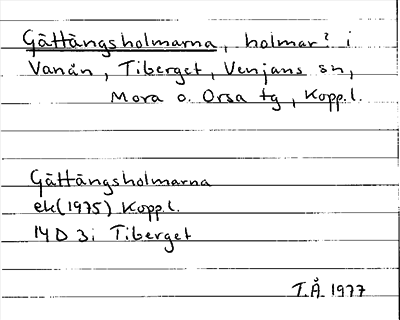 Gåttängsholmarna, holmar? i
Vanån, Tiberget, Venjans sn,
Mora o. Orsa tg, Kopp.l.
Gåttängsholmarna
ek(1975) Kopp.l.
14D 3i Tiberget
T.Å. 1977